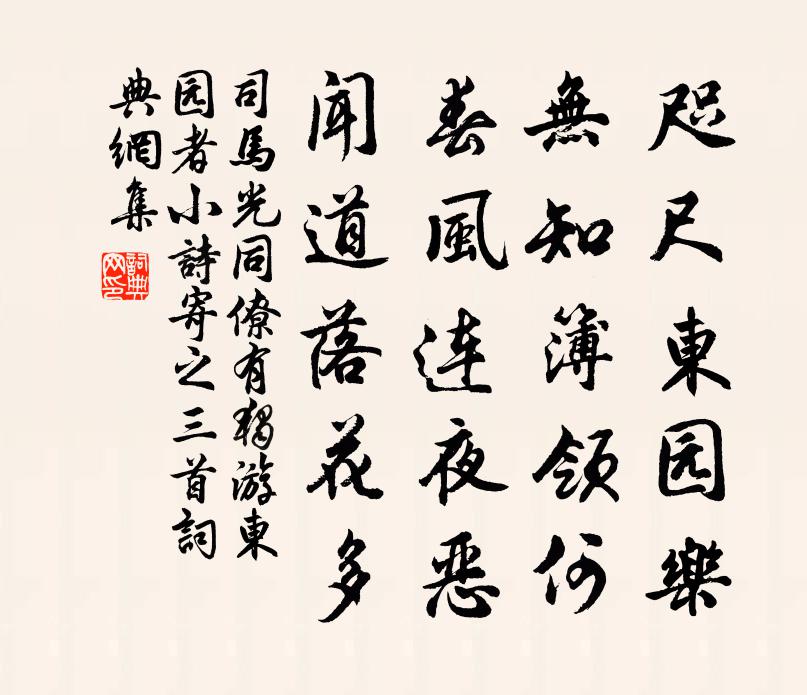 咫尺東园樂
無知簿領何
春風连夜恶
闻道落花多
司馬光同僚有独游東
园者小詩寄之三首詞
典網集
詞典网印